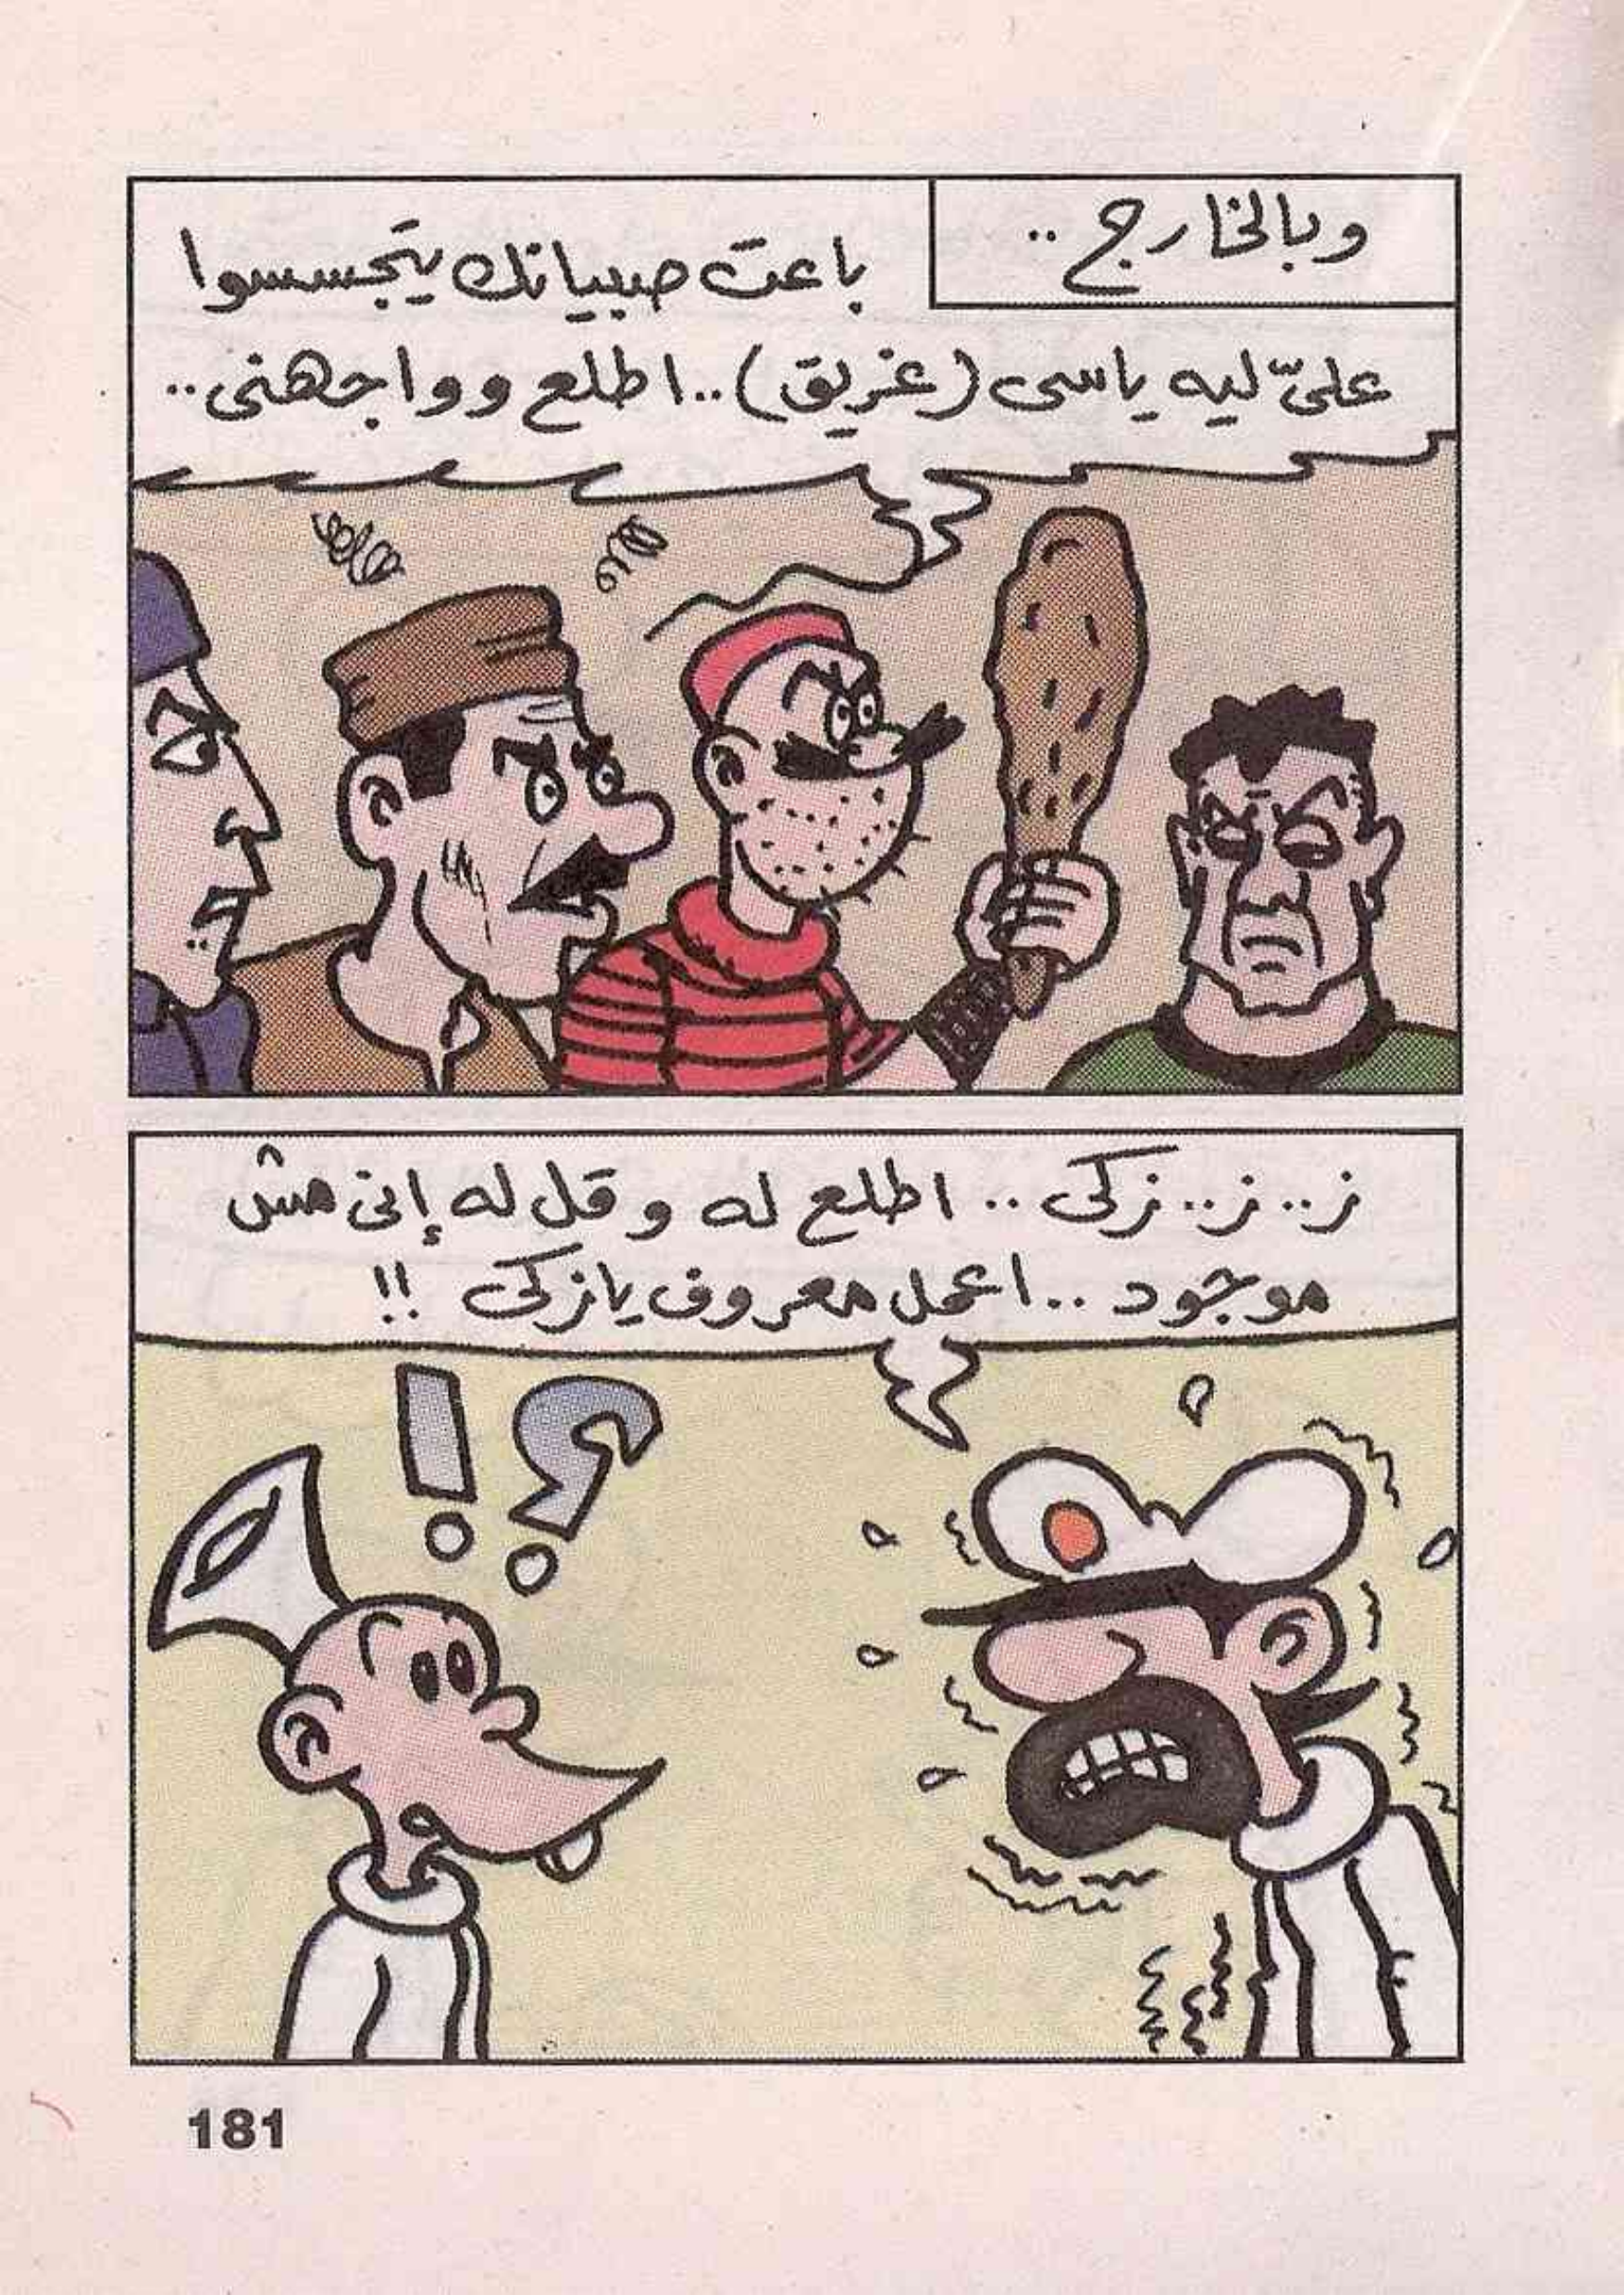 وبالخارج ..
باعت صبيانك يتجسسوا
علىّ ليه ياسى (غريق) .. اطلع وواجهنى ..
ز .. ز .. زكى .. اطلع له وقل له إنى مش
موجود .. اعمل معروف يازكى !!
؟!
181